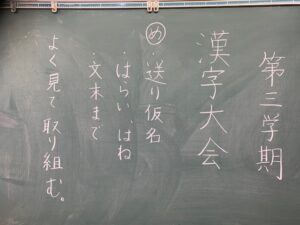 第三学期
漢字大会
め:送り仮名
・はらい、はね
・文末まで
よく見て取り組む。